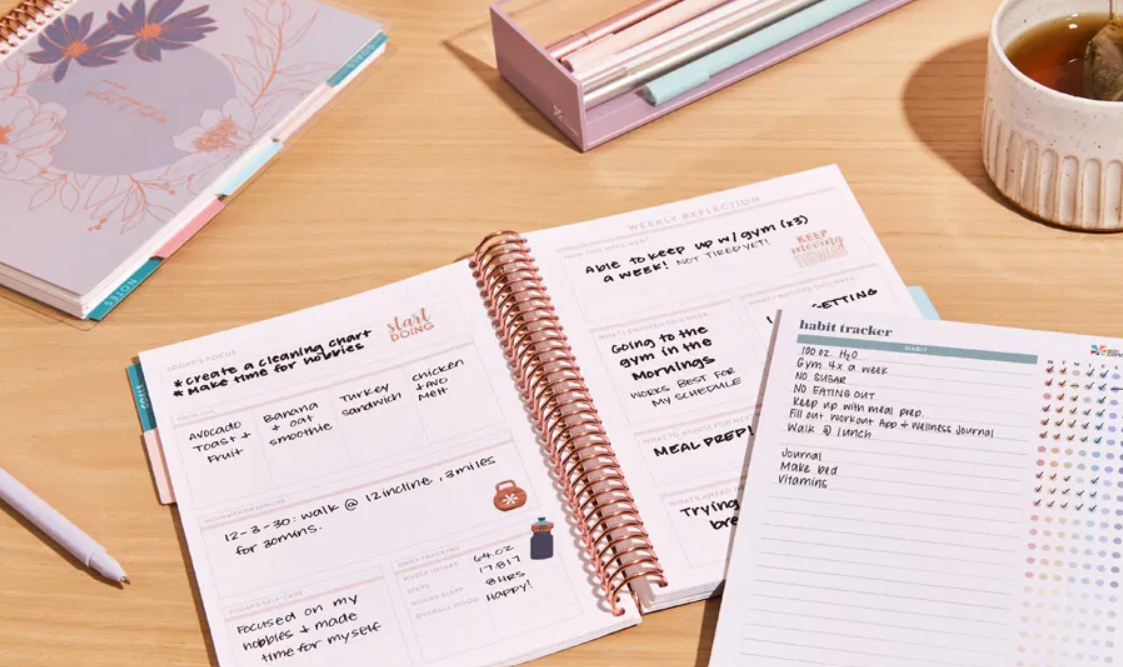 GOALS
NOTES
TODAY'S FOCUS
* create a cleaning chart
* Make time for hobbies
start
DOING
FOOD LOG
Avocado
Toast +
Fruit
Banana
+ oat
smoothie
Turkey
sandwich
chicken
+ Avo
Melt
MOVEMENT/EXERCISE
12-3-30: walk @ 12 incline, 3 miles
for 30mins.
TODAY'S SELF-CARE
Focused on my
hobbies + made
time for myself
DAILY TRACKING
WATER INTAKE 64.oz
STEPS 17,817
HOURS SLEPT 8 HRS
OVERALL MOOD Happy!
WEEKLY REFLECTION
Able to keep up w/ gym (x3)
a week! NOT TIRED YET!
KEEP
moving
FORWARD
WHAT I ENJOYED THIS WEEK
Going to the
gym in the
Mornings
WORKS BEST FOR
MY SCHEDULE
WHAT I NOTICED THIS WEEK
GETTING
WHAT TO ADJUST FOR
MEAL PREP!
WHAT'S AHEAD
Trying
bre
habit tracker
HABIT
M T W
100 oz. H2O
Gym 4x a week
NO SUGAR
NO EATING OUT
Keep up with meal prep
Fill out workout App + Wellness Journal
Walk @ lunch
Journal
Make bed
Vitamins